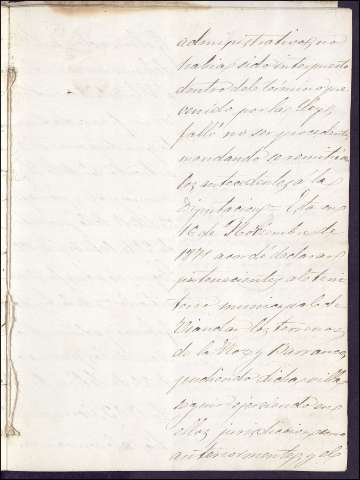 administrativos, no
habia sido interpuesto
dentro del termino pre
venido por las leyes,
falló no ser procedente
mandando se remitiera
los antecedentes á la
Diputacion. Esta en
16 de Noviembre de
1871 acordó declarar
pertenecientes al term
torio municipal de
Viandar los terrenos
de la Hoz y Barranco
pudiendo dicha villa
seguir ejerciendo en
ellos jurisdiccion como
anteriormente, y el